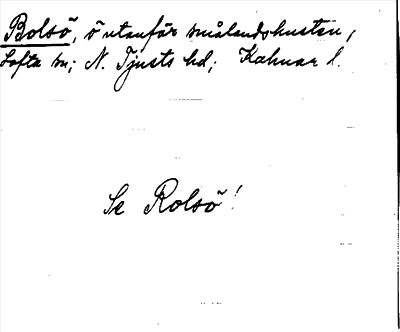 Bolsö, ö utanför smålandskusten,
Lofta sn; N. Tjusts hd; Kalmar l.
Se Rolsö!